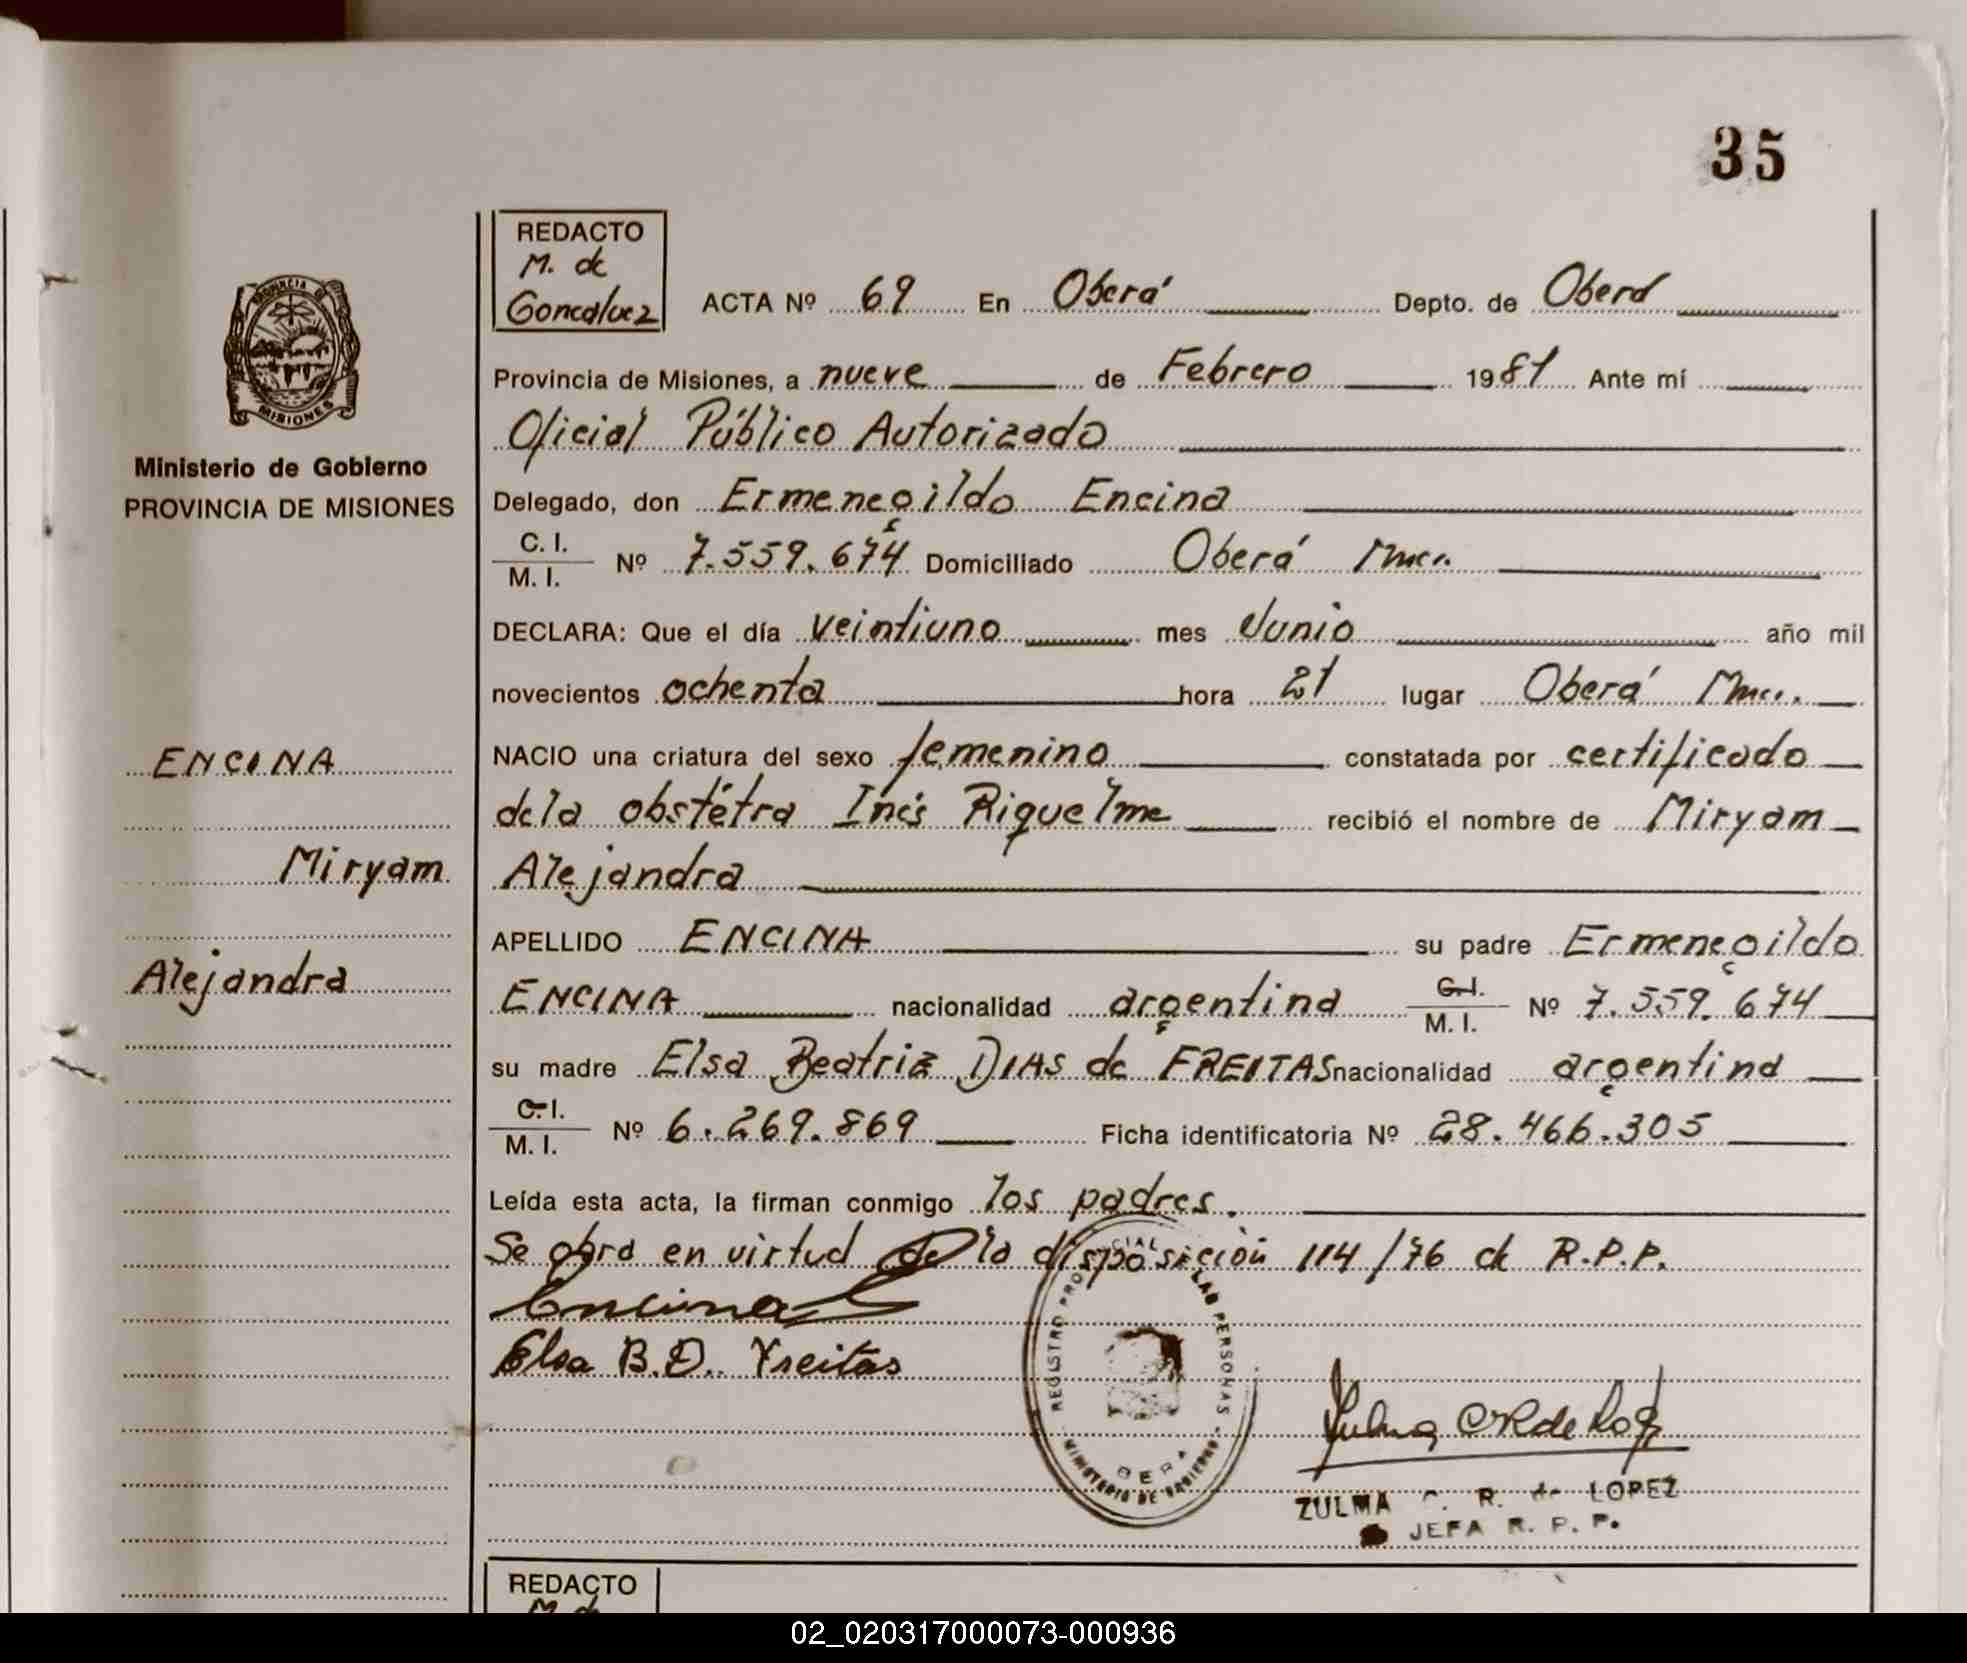 35
REDACTO
M. de
Goncalvez
ACTA Nº 69 En Oberá Depto. de Oberá
Provincia de Misiones, a nueve de Febrero 1981 Ante mí
Oficial Público Autorizado
Delegado, don Ermenegildo Encina
C. I.
M. I. Nº 7.559.674 Domiciliado Oberá Mnes.
DECLARA: Que el día veintiuno mes Junio año mil
novecientos ochenta hora 21 lugar Oberá Mnes.
NACIO una criatura del sexo femenino constatada por certificado
de la obstétra Inés Riquelme recibió el nombre de Miryam
Alejandra
APELLIDO ENCINA su padre Ermenegildo
ENCINA nacionalidad argentina C.I. M. I. Nº 7.559.674
su madre Elsa Beatriz DIAS de FREITAS nacionalidad argentina
C.I.
M. I. Nº 6.269.869 Ficha identificatoria Nº 28.466.305
Leída esta acta, la firman conmigo los padres.
Se obra en virtud de la disposición 114/76 de R.P.P.
Encina
Elsa B.D. Freitas
REGISTRO PROVINCIAL LAS PERSONAS
OBERA
MINISTERIO DE GOBIERNO
ZULMA C. R. de LOPEZ
JEFA R. P. P.
PROVINCIA DE
MISIONES
Ministerio de Gobierno
PROVINCIA DE MISIONES
ENCINA
Miryam
Alejandra
REDACTO
M. de
02_020317000073-000936